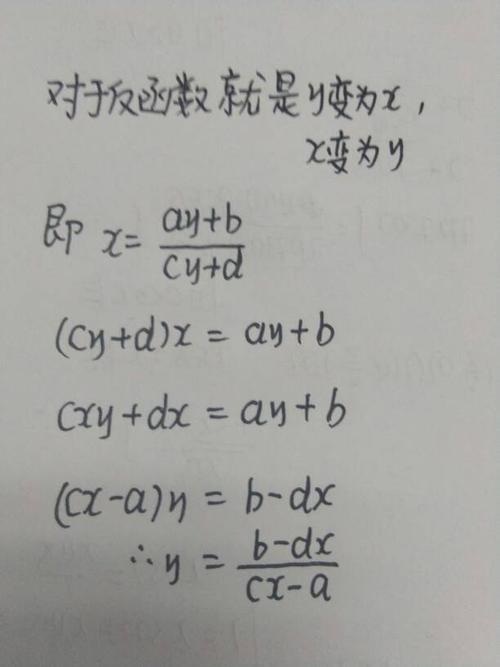 对于反函数就是y变为x,
x变为y
即 x=(ay+b)/(cy+d)
(cy+d)x=ay+b
cxy+dx=ay+b
(cx-a)y=b-dx
∴y=(b-dx)/(cx-a)